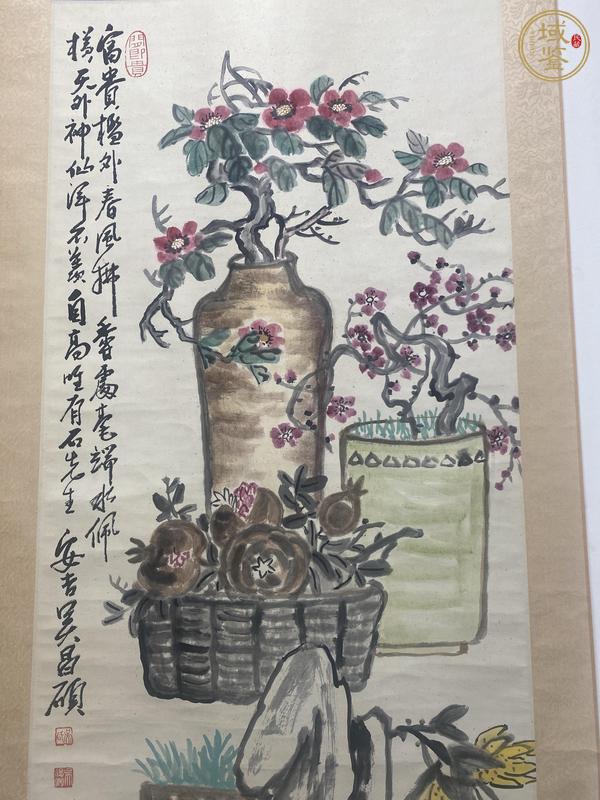 富貴檻外春風拂 香處毫端水佩
橫天外神仙渾不羨自高唯有石先生 安吉吳昌碩
域鑒